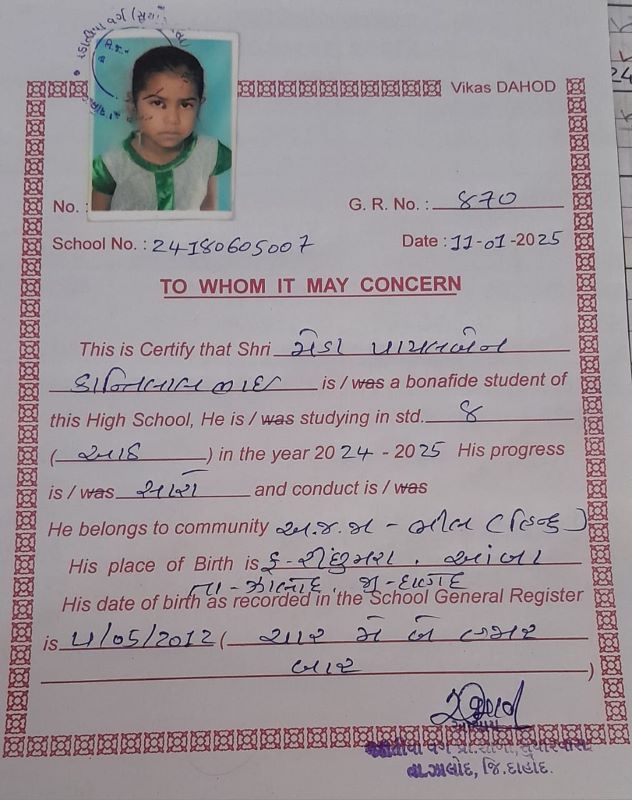 Vikas DAHOD
No. :
G. R. No. : 870
School No. : 24180605007
Date : 11-01-2025
TO WHOM IT MAY CONCERN
This is Certify that Shri મેડા પાયલબેન
કાન્તિલાલભાઇ is / was a bonafide student of
this High School, He is / was studying in std. ૪
( આઠ ) in the year 2024 - 2025 His progress
is / was સારો and conduct is / was
He belongs to community અ.જ.જા - ભીલ (હિન્દુ)
His place of Birth is
તા - ઝાલોદ, જી - દાહોદ
His date of birth as recorded in the School General Register
is 4/05/2012 ( ચાર મે બે હજાર
બાર )
આચાર્ય
વર્ગ પ્રા. શાળા,
તા. ઝાલોદ, જિ. દાહોદ.